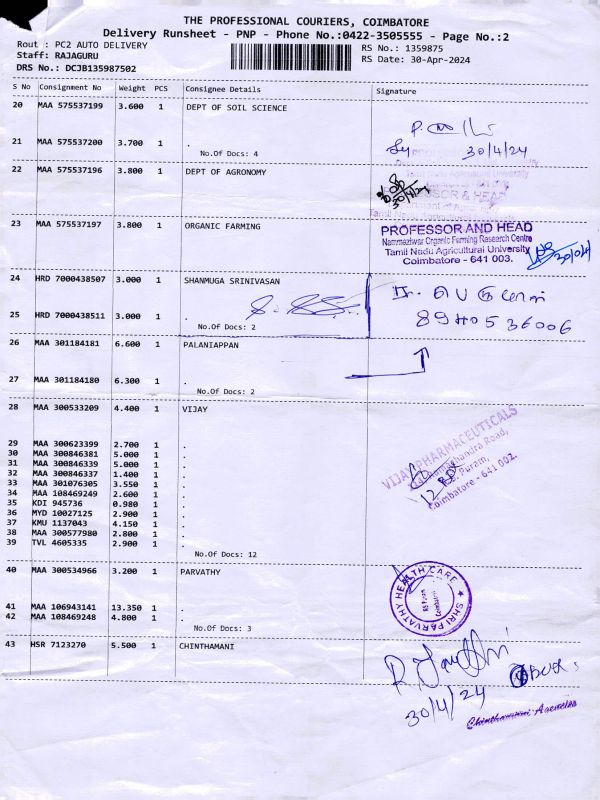 THE PROFESSIONAL COURIERS, COIMBATORE
Delivery Runsheet - PNP - Phone No.:0422-3505555 - Page No.:2
Rout : PC2 AUTO DELIVERY
RS No.: 1359875
Staff: RAJAGURU
RS Date: 30-Apr-2024
DRS No.: DCJB135987502
S No Consignment No Weight PCS Consignee Details Signature
20 MAA 575537199 3.600 1 DEPT OF SOIL SCIENCE
21 MAA 575537200 3.700 1 .
30/4/24
No.Of Docs: 4
22 MAA 575537196 3.800 1 DEPT OF AGRONOMY
30/4/24
23 MAA 575537197 3.800 1 ORGANIC FARMING
PROFESSOR AND HEAD
Nammazhvar Organic Farming Research Centre
Tamil Nadu Agricultural University
Coimbatore - 641 003.
24 HRD 7000438507 3.000 1 SHANMUGA SRINIVASAN
25 HRD 7000438511 3.000 1 .
No.Of Docs: 2
26 MAA 301184181 6.600 1 PALANIAPPAN
27 MAA 301184180 6.300 1 .
No.Of Docs: 2
28 MAA 300533209 4.400 1 VIJAY
29 MAA 300623399 2.700 1 .
30 MAA 300846381 5.000 1 .
31 MAA 300846339 5.000 1 .
32 MAA 300846337 1.400 1 .
33 MAA 301076305 3.550 1 .
34 MAA 108469249 2.600 1 .
35 KDI 945736 0.980 1 .
36 MYD 10027125 2.900 1 .
37 KMU 1137043 4.150 1 .
38 MAA 300577980 2.800 1 .
39 TVL 4605335 2.900 1 .
No.Of Docs: 12
VIJAY PHARMACEUTICALS
Puram,
Coimbatore - 641 002.
12 BOX
40 MAA 300534966 3.200 1 PARVATHY
41 MAA 106943141 13.350 1 .
42 MAA 108469248 4.800 1 .
No.Of Docs: 3
SHRI PARVATHY HEALTH CARE
RS Puram
Coimbatore
43 HSR 7123270 5.500 1 CHINTHAMANI
30/4/24
Chinthamani Agencies